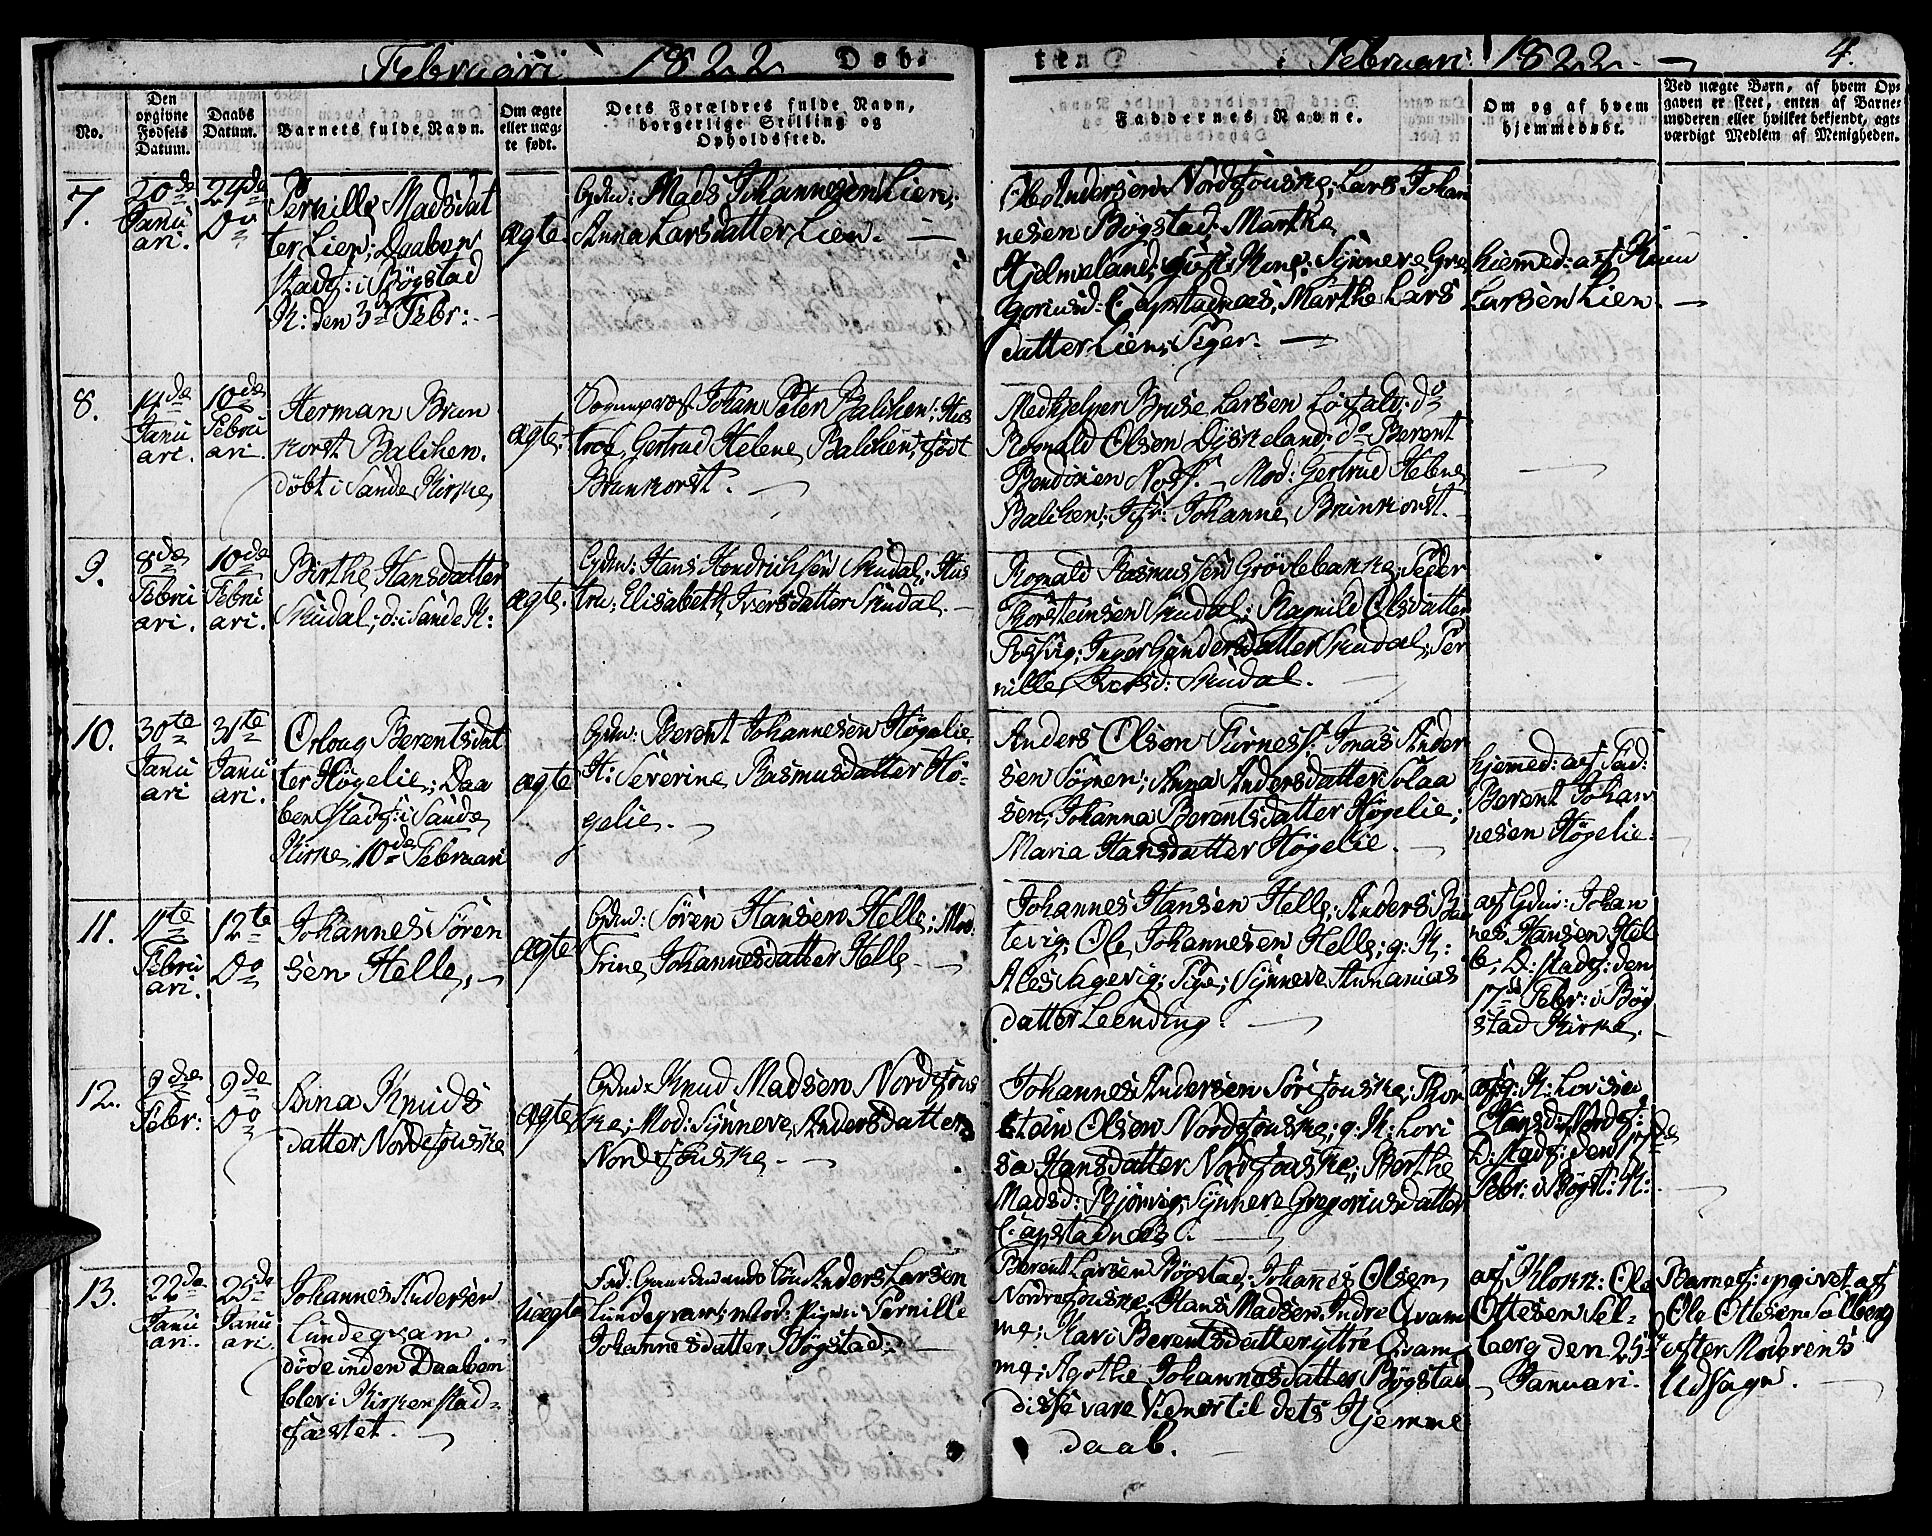 Februari 1822 Døb-
te i Februari 1822. 4.
No.
Den opgivne Fødsels Datum.
Daabs Datum.
Barnets fulde Navn.
Om ægte eller uægte født.
Dets Forældres fulde Navn, borgerlige Stilling og Opholdssted.
Faddernes Navne.
Om og af hvem hjemmedøbt.
Ved uægte Børn, af hvem Opgaven er skeet, enten af Barnemoderen eller hvilket bekjendt, agtværdigt Medlem af Menigheden.
7.
20de
Janu
ari.
24de
Do
Pernille Madsdat
ter Lien; Daaben
stadf: i Bøgstad
K: den 3die Febr:
ægte.
Gdm: Mads Johannesen Lien;
Anna Larsdatter Lien.
Ole Andersen Nordefouske; Lars Johan
nesen Bøgstad; Marthe
Hjelmeland; gift Kone; Synneve Gre
goriusd: Capstadnæs, Marthe Lars
datter Lien; Piger.
hjemmed: af Knu
Larsen Lien.
8.
14de
Janu
ari.
10de
Febru
ari.
Herman Brun
korst Balchen.
døbt i Sande Kirke,
ægte.
Sognepræst Johan Peter Balchen; Hus
troe, Gertrud Helene Balchen, født
Brunkorst.
Medhjelper Bruse Larsen Løsfald; do
Rognald Olsen Dyskeland; do Berent
Bendixen . Mad: Gertrud Helene
Balchen; Jfr: Johanne Brunkorst.
9.
8de
Febru
ari.
10de
Febru
ari.
Birthe Hansdatter
Skudal; d: i Sande K:
ægte.
Gdm: Hans Hendrichsen Skudal; Hus
tru; Elisabeth Iversdatter Skudal.
Rognald Rasmussen Grøvlebakke; Peder
Thorsteinsen Skudal; Ragnild Olsdatter
Tosvig; Inger Gundersdatter Skudal; Per
nille Iversd: Skudal.
10.
30te
Janu
ari
31te
Janu
ari.
Orloug Berentsdat
ter Høgelie; Daa
ben stadf: i Sande
Kirke, 10de Februari
ægte
Gdm: Berent Johannesen Høgelie,
H: Severine Rasmusdatter Hø-
gelie.
Anders Olsen Furnes; Jonas Ander
sen Søgnen; Anna Andersdatter Solaa
sen, Johanna Berentsdatter Høgelie;
Maria Hansdatter Høgelie.
hjemmed: af Fad:
Berent Johan
nesen Høgelie.
11.
11te
Febru
ari.
12te
Do
Johannes Sören
sen Helle,
ægte
Gdm: Sören Hansen Helle; Mod.
Trine Johannesdatter Helle
Johannes Hansen Helle; Anders Ba
tevig; Ole Johannesen Helle; g: K:
Ales Sagevig; Pige; Synneve Ananias
datter Leending.
af Gdm: Johan
nes Hansen Hel
le; D: stadf: den
17de Febr: i Bøg
stad Kirke.
12.
9de
Febr:
9de
Do
Stina Knuds
datter Nordefouske
ægte
Gdm: Knud Madsen Nordefous
ke; Mod: Synneve Andersdatter
Nordefouske.
Johannes Andersen Sørefouske; Thor
stein Olsen Nordefouske; g: K: Lovi
sa Hansdatter Nordefouske; Berthe
Madsd: Bjørvig; Synneve Gregoriusdatter
Capstadnæs.
af g: K: Lovisa
Hansd: Nordf:
D: stadf: den 17de
Febr: i Bøgst: K:
13.
22de
Janu
ari.
25de
Janu
ari.
Johannes Andersen
Lundeqvam.
døde inden Daaben
blev i Kirken stad-
fæstet.
uægte
Fad: Gaardmands Søn Anders Larsen
Lundeqvam; Mod: Pigen Pernille
Johannesdatter Bøgstad.
Berent Larsen Bøgstad; Johanes Olsen
Nordrefouske; Hans Madsen Indre Qvam
me; Kari Berentsdatter yttre Qvam
me; Agethe Johannesdatter Bøgstad
disse vare Vidner til dets Hjemme
daab.
af Klokk: Ole
Ottesen Sel-
berg den 25de
Januari.
Barnef: ingivet af
Ole Ottesen Sølberg
efter Moderens
Udsagn.